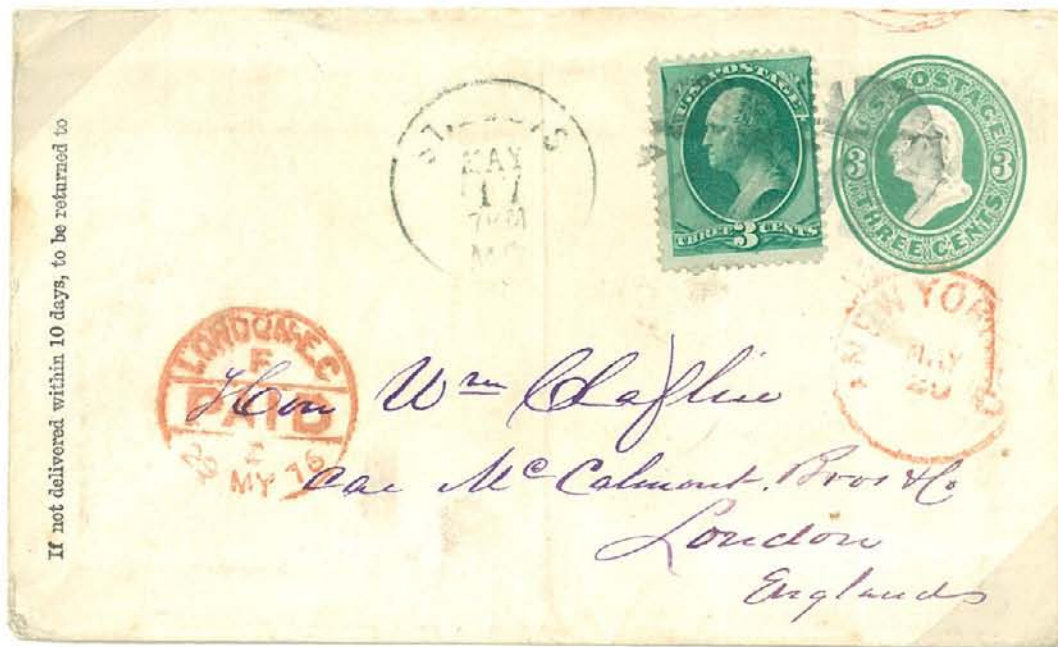 If not delivered within 10 days, to be returned to
ST. LOUIS
MAY
17
7 PM
MO
U.S. POSTAGE
THREE 3 CENTS
U.S. POSTAGE
3 3
THREE CENTS
NEW YORK
MAY
20
LONDON.E.C
F
PAID
MY 76
Hon Wm Claflin
Car McCalmont. Bros & Co
London
England